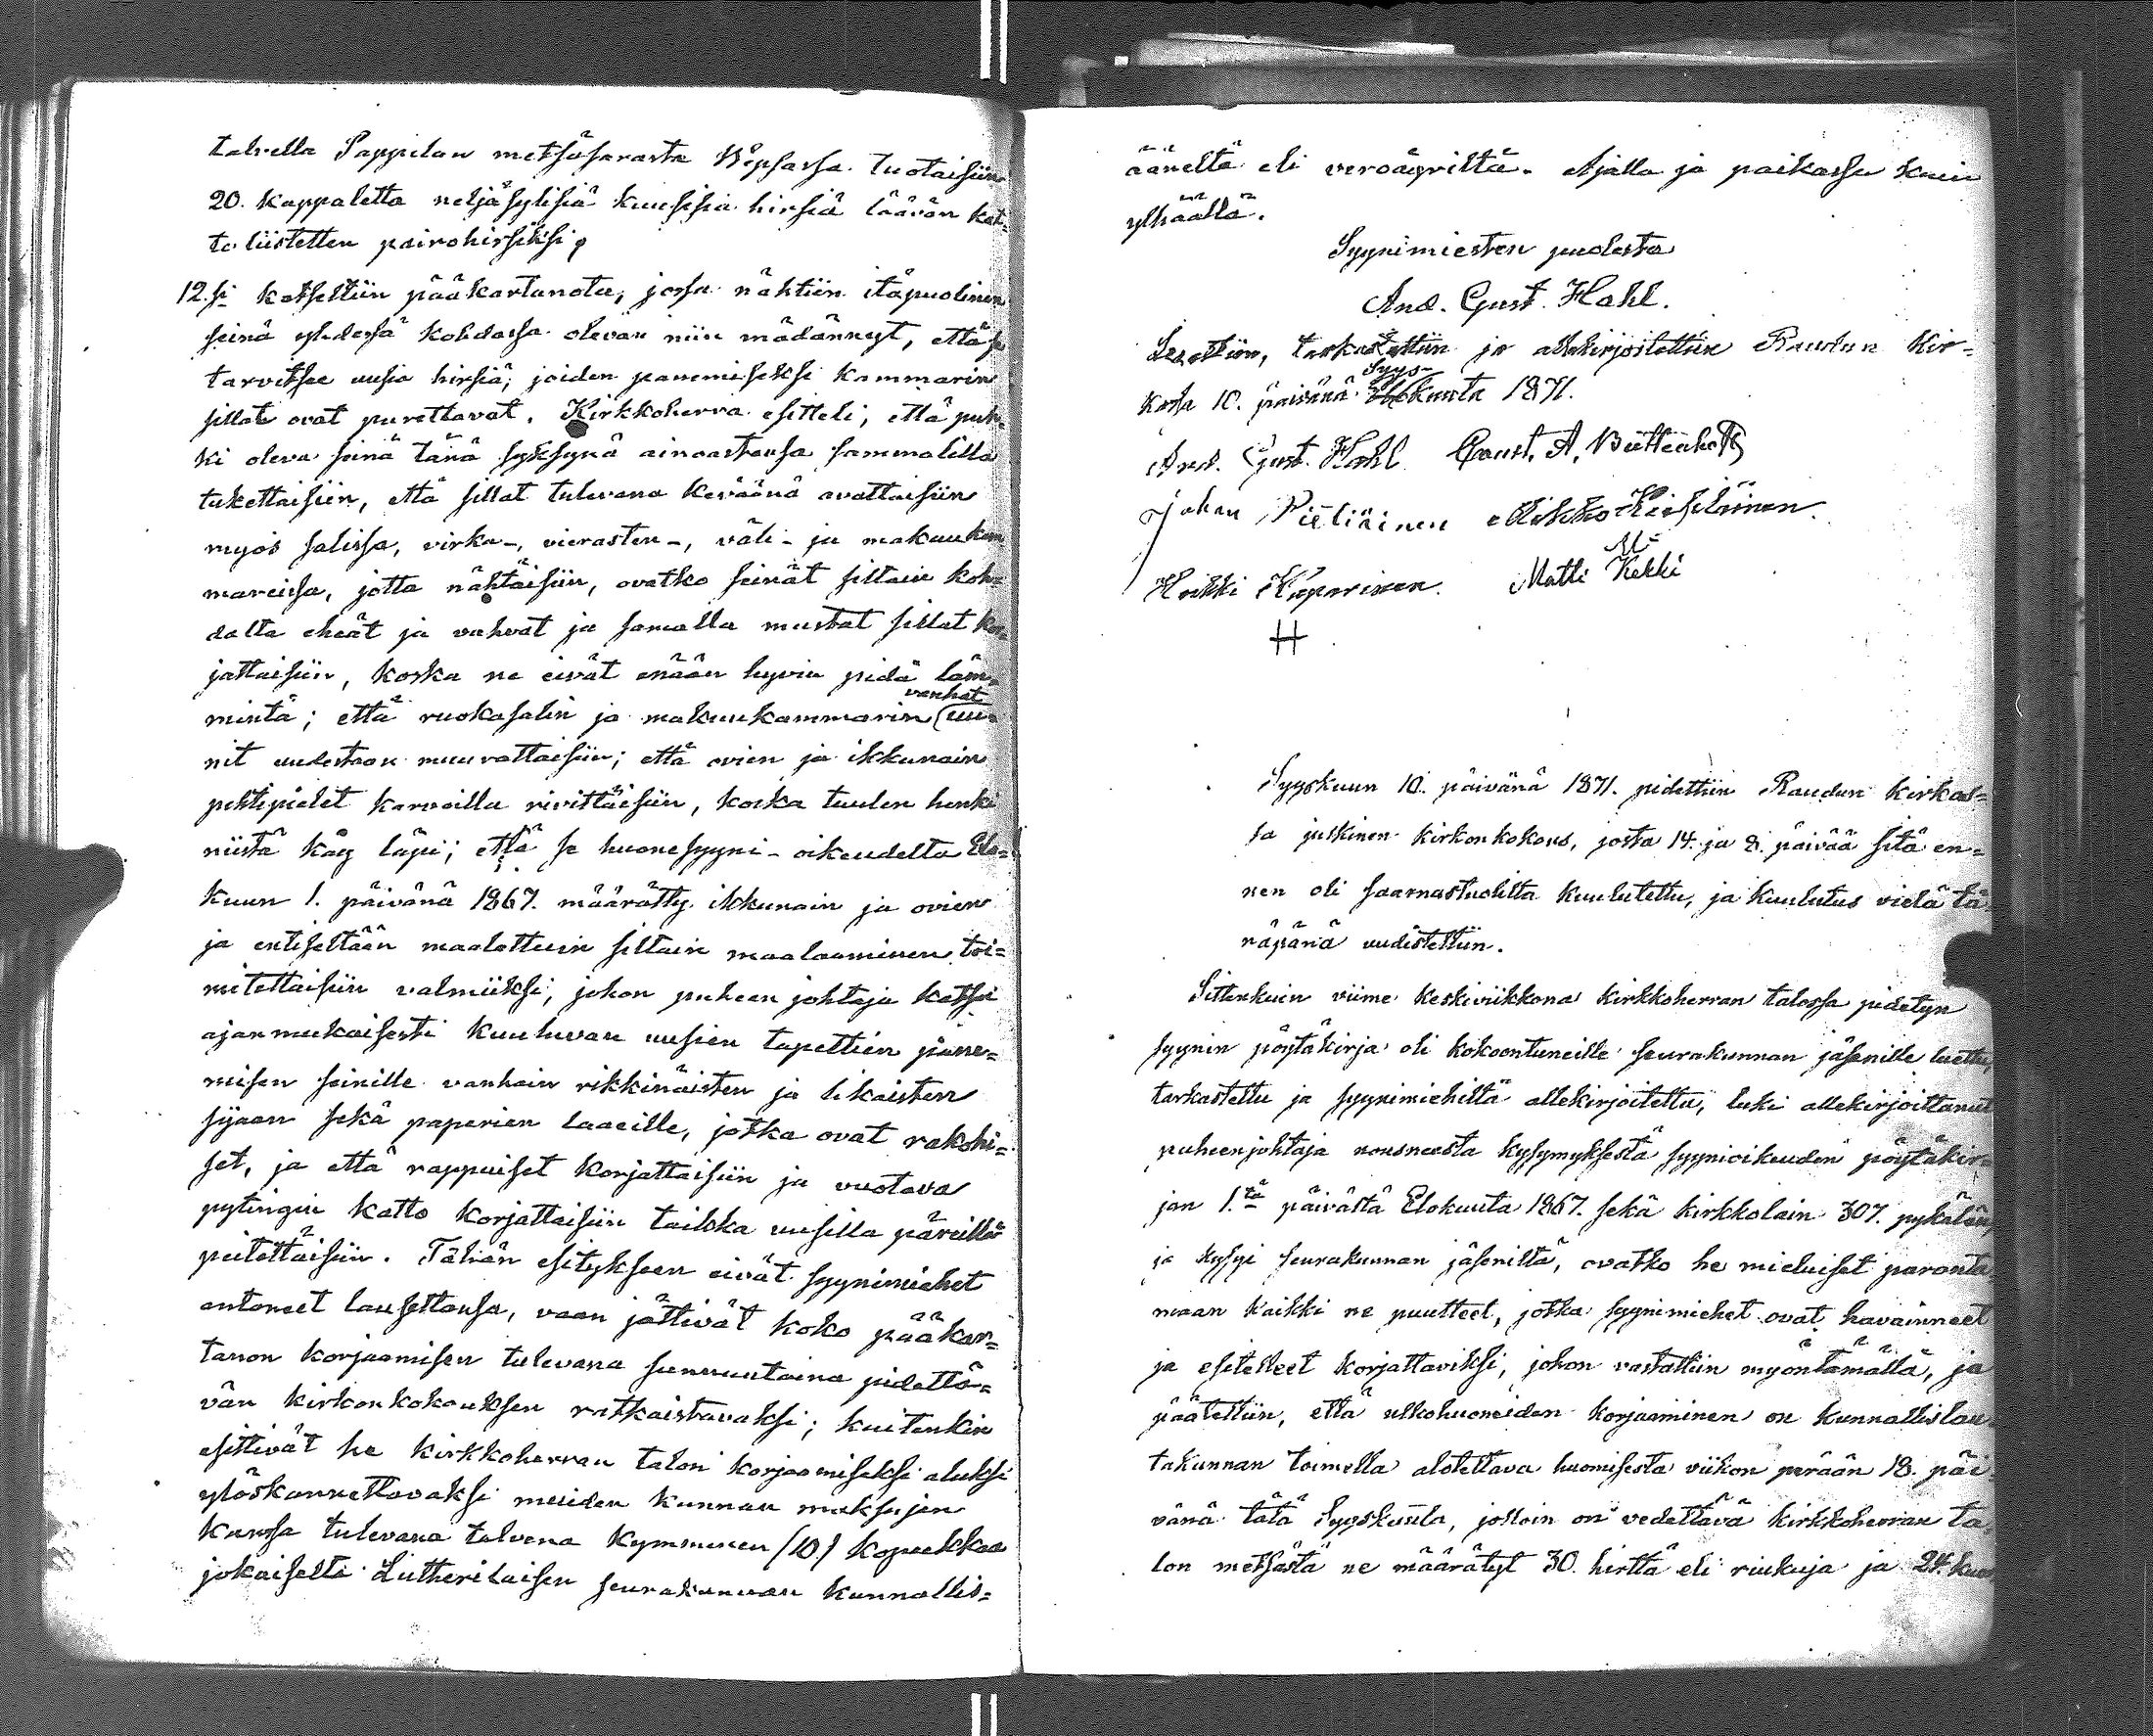 talvella Pappilan metsäsarasta Wepsassa tuotaisiin
20. kappaletta neljäsylisiä kuusisia hirsiä läävän kat=
to liistetten painohirsiksi;
12.si katseltiin pääkartanota, jossa nähtiin itäpuolinen
seinä yhdessä kohdassa olevan niin mädännyt, että se
tarvitsee uusia hirsiä, joiden panemiseksi kammarin
sillat ovat purettavat. Kirkkoherra esitteli, että puh=
ki oleva seinä tänä syksynä ainoastansa sammalilla
tukettaisiin, että sillat tulevana keväänä avattaisiin
myös salissa, virka-, vierasten-, väli- ja makuukam
mareissa, jotta nähtäisiin, ovatko seinät siltain koh=
dalta eheät ja vahvat ja samalla mustat sillat kor=
jattaisiin, koska ne eivät enään hyvin pidä läm=
mintä; että ruokasalin ja makuukammarin vanhat uu=
nit uudestaan muurattaisiin; että ovien ja ikkunain
pihtipielet karvoilla rivittäisiin, koska tuulen henki
niistä käy läpi; että se huonesyyni-oikeudelta Elo=
kuun 1. päivänä 1867. määrätty ikkunain ja ovien
ja entiseltään maalattuin siltain maalaaminen toi=
mitettaisiin valmiiksi, johon puheen johtaja katsoi
ajanmukaisesti kuuluvan uusien tapettien pane=
misen seinille vanhain rikkinäisten ja likaisten
sijaan sekä paperien laaeille, jotka ovat rakohi=
set, ja että rappuiset korjattaisiin ja vuotava
pytingin katto korjattaisiin taikka uusilla päreillä
peitettäisiin. Tähän esitykseen eivät syynimiehet
antaneet lausettansa, vaan jättivät koko pääkar=
tanon korjaamisen tulevana sunnuntaina pidettä=
vän kirkonkokouksen ratkaistavaksi; kuitenkin
esittivät he kirkkoherran talon korjaamiseksi aluksi
ylöskannettavaksi muiden kunnan maksujen
kanssa tulevana talvena kymmenen (10) kopeekkaa
jokaiselta Lutherilaisen seurakunnan kunnallis=
ääneltä eli veroäyriltä. Ajalla ja paikassa kuin
ylhäällä.
Syynimiesten puolesta
And. Gust. Hahl.
Luettiin, tarkastettiin ja allekirjoitettiin Raudun kir=
kossa 10. päivänä Syys-kuuta 1871.
And. Gust. Hahl. Const. A.
Johan Pietiäinen Mikko
Heikki Kaparinen. Matti Kekki
H
Syyskuun 10. päivänä 1871. pidettiin Raudun kirkos=
sa julkinen kirkonkokous, josta 14. ja 8. päivää sitä en=
nen oli saarnastuolilta kuulutettu, ja kuulutus vielä tä=
näpänä uudistettiin.
Sittenkuin viime keskiviikkona kirkkoherran talossa pidetyn
syynin pöytäkirja oli kokoontuneille seurakunnan jäsenille luettu,
tarkastettu ja syynimiehiltä allekirjoitettu, luki allekirjoittanut
puheenjohtaja nousneesta kysymyksestä syynioikeuden pöytäkir=
jan 1.tä päivästä Elokuuta 1867. sekä kirkkolain 307. pykälän,
ja kysyi seurakunnan jäseniltä, ovatko he mieluiset paranta
maan kaikki ne puutteet, jotka syynimiehet ovat havainneet
ja esitelleet korjattaviksi, johon vastattiin myöntämällä, ja
päätettiin, että ulkohuoneiden korjaaminen on kunnallislau
takunnan toimella alotettava huomisesta viikon perään 18. päi
vänä tätä Syyskuuta, jolloin on vedettävä kirkkoherran ta
lon metsästä ne määrätyt 30. hirttä eli riukuja ja 24. kuu